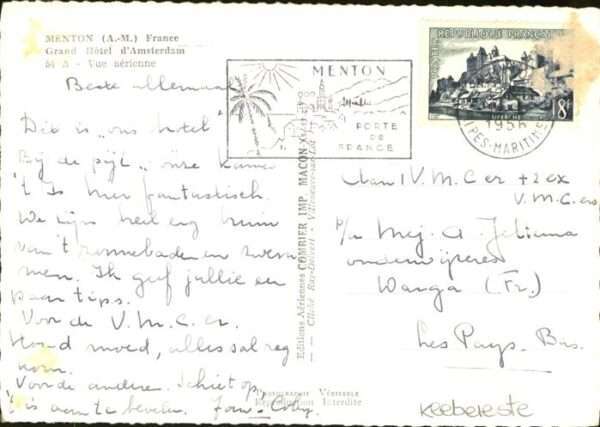 MENTON (A.-M.) France
Grand Hôtel d'Amsterdam
54 A - Vue aérienne
Beste allemaal
Dit is „ons hotel"
Bij de pijl „onze kamer"
't Is hier fantastisch.
We zijn heel erg bruin
van 't zonnebaden en zwem
men. Ik geef jullie een
paar tips.
Voor de V.M.C.er.
Houd moed, alles sal reg
kom.
Voor de andere. Schiet op,
't is aan te bevelen. Coby.
Editions Aériennes COMBIER IMP. MACON
PHOTOGRAPHIE VÉRITABLE
Reproduction Interdite
MENTON
PORTE
DE
FRANCE
RÉPUBLIQUE FRANÇAISE
UZERCHE
8F
1956
PES-MARITIMES
Aan 1 V.M.C er + 2 ex
V.M.C.ers
p/a Mej. A Jelsma
onderwijzeres
Warga (Fr.)
Les Pays-Bas.